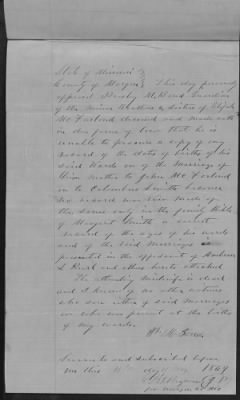 State of Missouri
County of Morgan This day personally
appeared Presley M. Bond Guardian
of the minor Brothers & Sisters of Elijah
McFarland deceased and made oath
in due form of law that he is
unable to procure a copy of any
record of the date of births of his
said Wards or of the Marriage of
their mother to John McFarland
or to Columbus Smith because
no record was ever made of
the same only in the family Bible
of Margaret Smith a correct
record of the ages of his wards
and of the said Marriages is
presented in the affidavit of
and others hereto attached
The attending midwife is dead
and I know of no other witness
who saw either of said Marriages
or who was present at the births
of my wards.
Sworn to and subscribed before
me this day of 1869